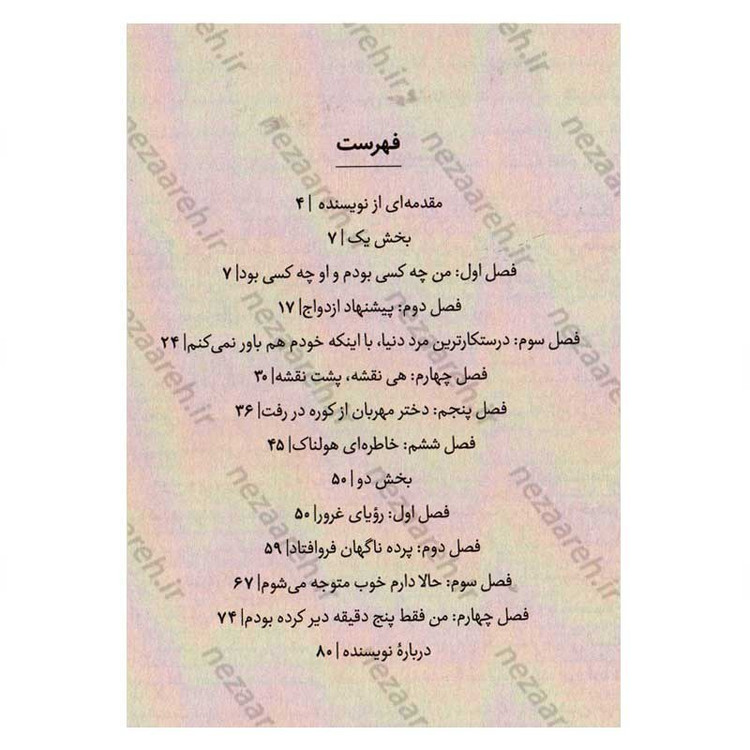 فهرست
مقدمه‌ای از نویسنده | ۴
بخش یک | ۷
فصل اول: من چه کسی بودم و او چه کسی بود| ۷
فصل دوم: پیشنهاد ازدواج| ۱۷
فصل سوم: درستکارترین مرد دنیا، با اینکه خودم هم باور نمی‌کنم| ۲۴
فصل چهارم: هی نقشه، پشت نقشه| ۳۰
فصل پنجم: دختر مهربان از کوره در رفت| ۳۶
فصل ششم: خاطره‌ای هولناک| ۴۵
بخش دو | ۵۰
فصل اول: رؤیای غرور| ۵۰
فصل دوم: پرده ناگهان فروافتاد| ۵۹
فصل سوم: حالا دارم خوب متوجه می‌شوم| ۶۷
فصل چهارم: من فقط پنج دقیقه دیر کرده بودم| ۷۴
دربارهٔ نویسنده | ۸۰
nezaareh.ir